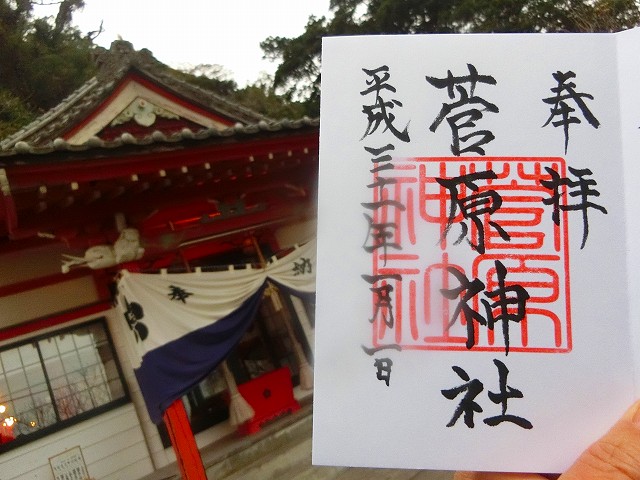 奉拝
菅原神社
平成三十一年一月一日
菅原
神社
奉納